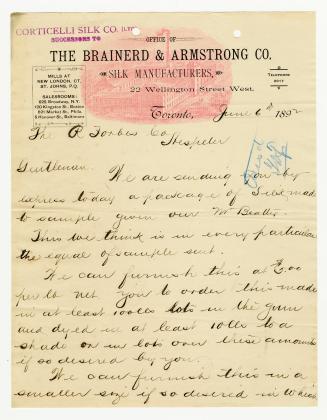 CORTICELLI SILK CO. LTD.
SUCCESSORS TO
OFFICE OF
THE BRAINERD & ARMSTRONG CO.
SILK MANUFACTURERS,
22 Wellington Street West.
MILLS AT
NEW LONDON, CT.
ST. JOHNS, P.Q.
SALESROOMS:
625 Broadway, N.Y.
120 Kingston St. Boston
821 Market St. Phila.
5 Hanover St. Baltimore
TELEPHONE
2017
Toronto, June 6th 1892
The R Forbes Co
Hespeler
Gentlemen. We are sending you by
express today a package of Silk made
to sample given our Mr Beattie.
This we think is in every particular
the equal of sample sent.
We can furnish this at
per lb net you to order this made
in at least 100lb lots in the gum
and dyed in at least 10lbs to a
shade or in lots over these amounts
if so desired by you.
We can furnish this in a
smaller size if so desired in which